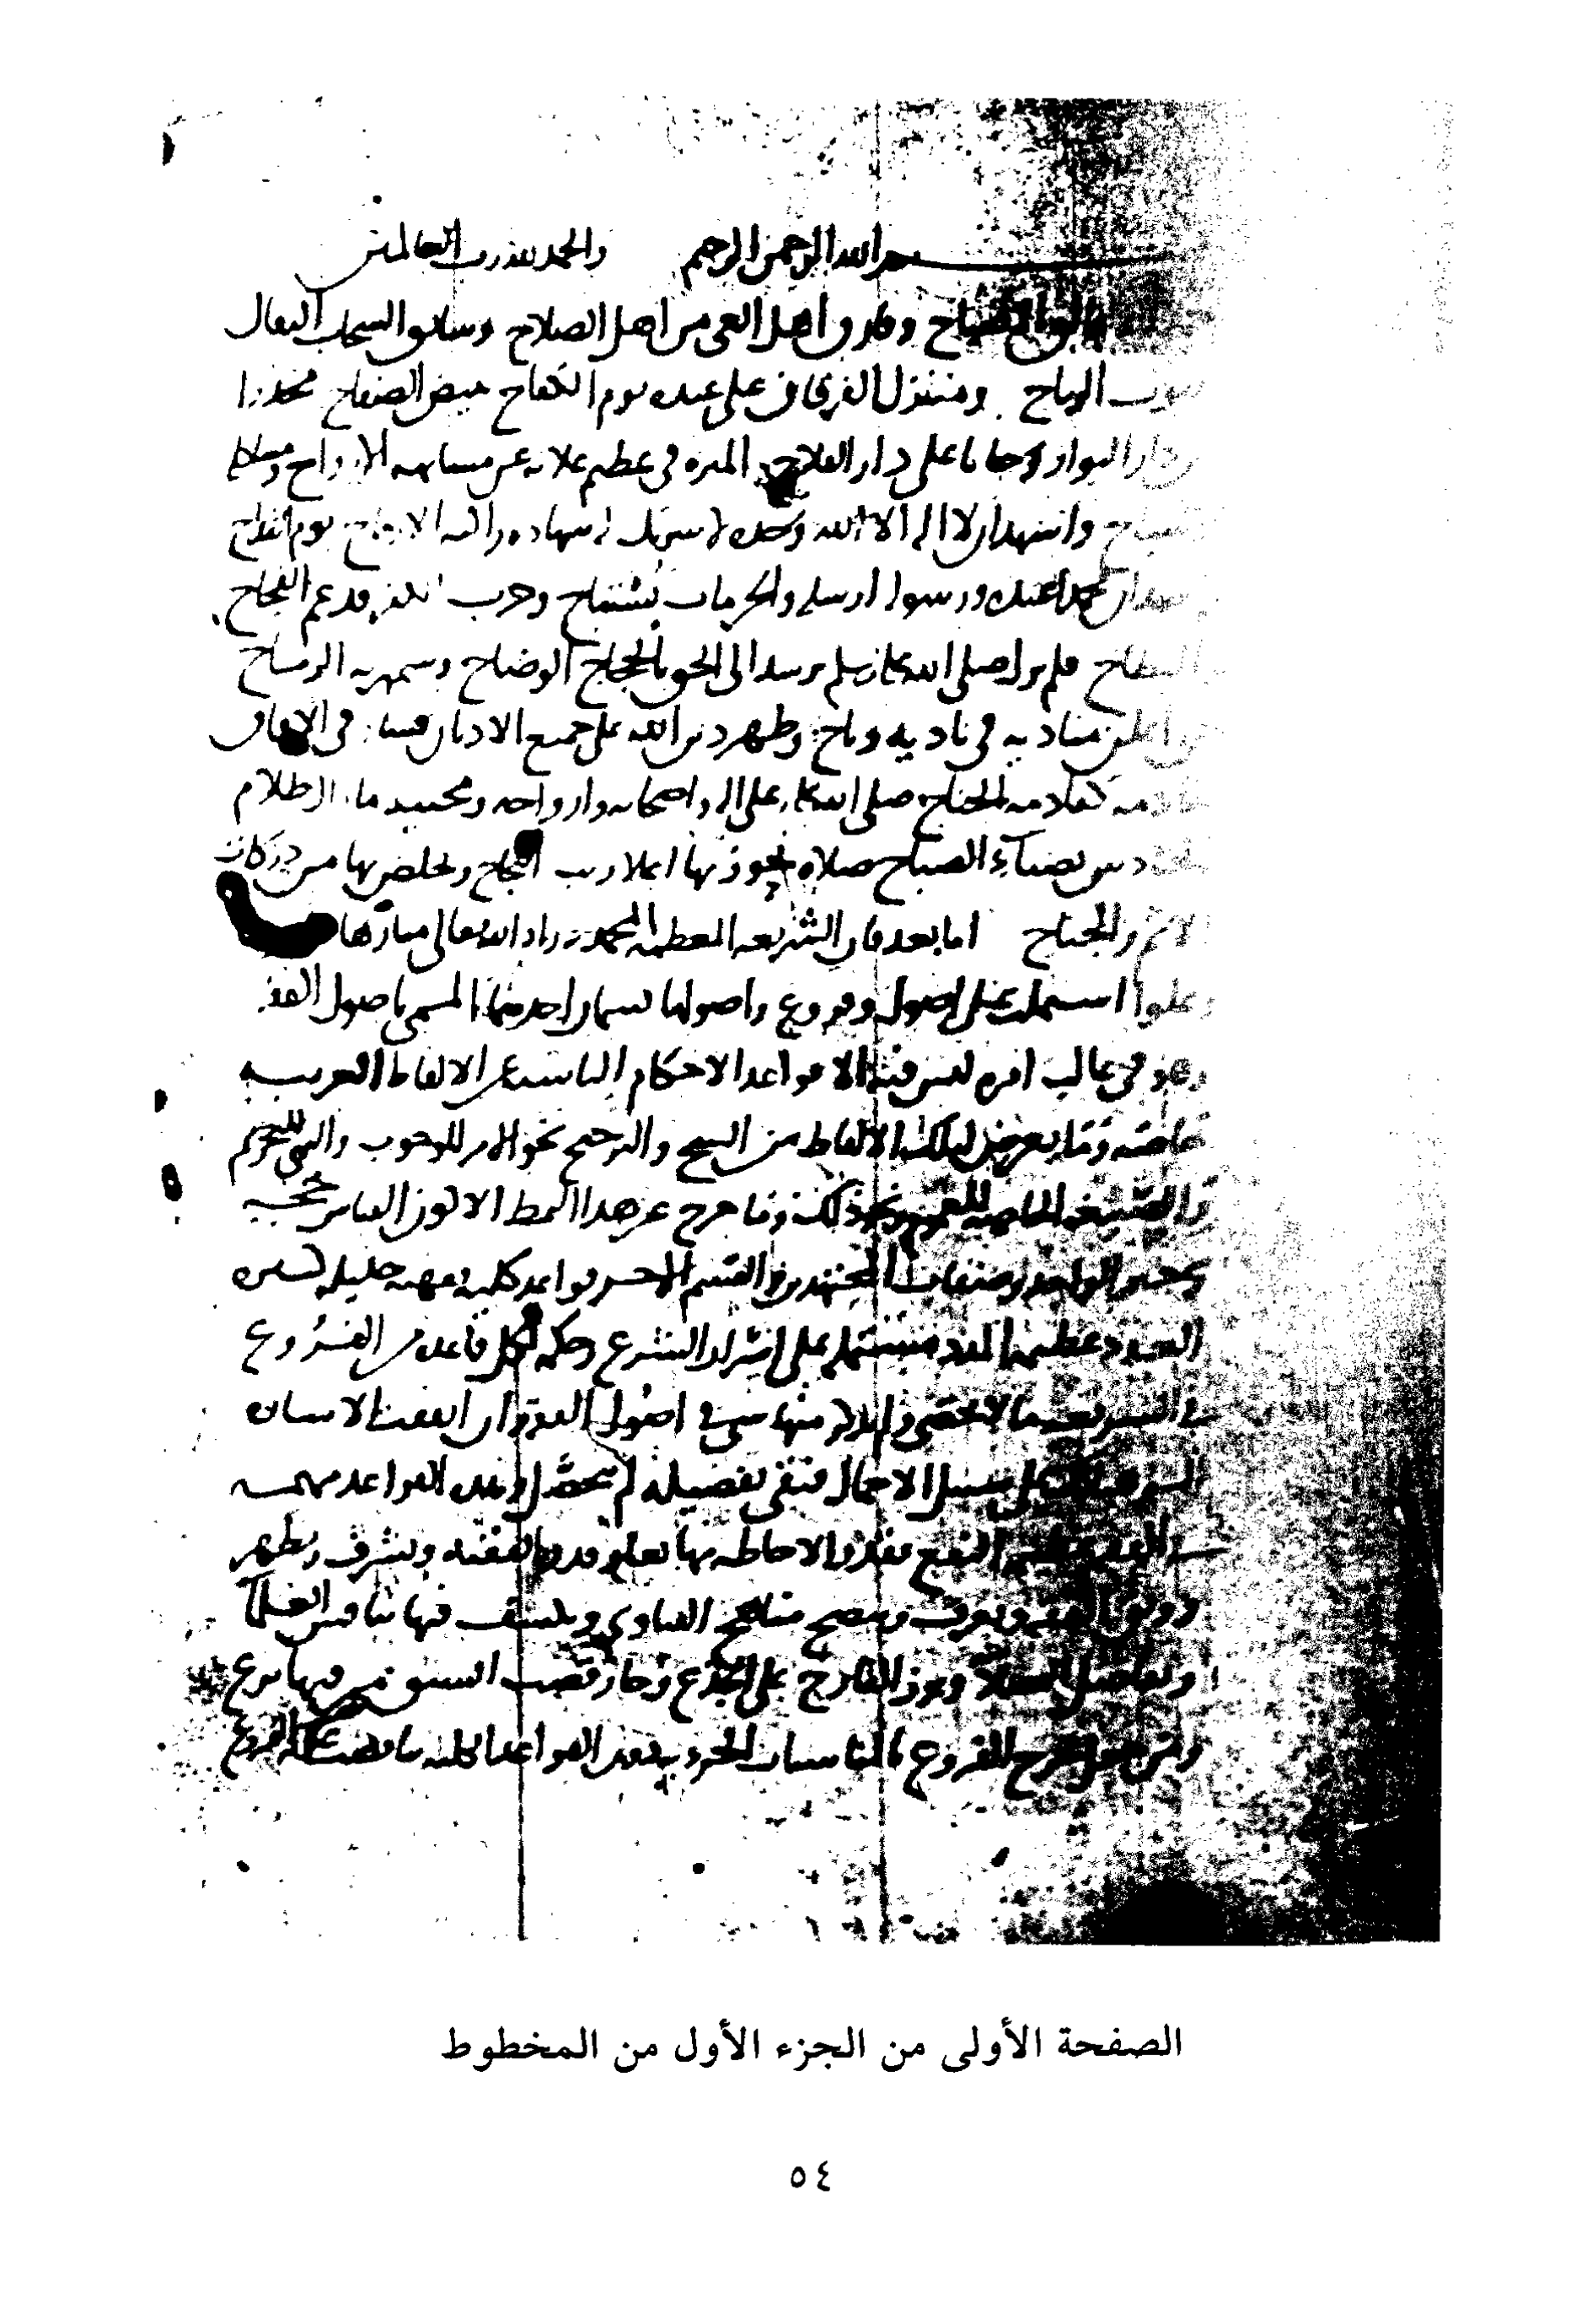 بسم الله الرحمن الرحيم والحمد لله رب العالمين
الاصباح وفارق اهل الغى من اهل الصلاح وسائق السحاب الثقال
الرياح ومنزل الفرقان على عبده يوم الكفاح ببيض الصفاح محذرا
دار البوار وحاثا على دار الفلاح المنزه فى عظيم علائه عن مشابهة الارواح
واشهد ان لا اله الا الله وحده لا شريك له شهادة يوم
محمدا عبده ورسوله ارسله والحرمات تستباح وحزب قد عم الفجاج
فلم يزل صلى الله عليه وسلم مرشدا الى الحق بالحجاج الوضاح وسمهرية الرماح
اعلن مناديه فى ناديه وباح وظهر دين الله على جميع الاديان فى الافاق
صلى الله عليه وعلى اله واصحابه وازواجه ومحبيه ما الظلام
بضياء الصباح صلاة نحوز بها اعلا رتب النجاح ونخلص بها من دركات
الاثم والجناح اما بعد فان الشريعة المعظمة المحمدية زاد الله تعالى منارها
وعلوا اشتملت على اصول وفروع واصولها قسمان احدهما المسمى باصول الفقه
وهو فى غالب امره ليس فيه الا قواعد الاحكام الناشئة عن الالفاظ العربية
خاصة وما يعرض لتلك الالفاظ من النسخ والترجيح نحو الامر للوجوب والنهى للتحريم
والصيغة الخاصة للعموم ونحو ذلك وما خرج عن هذا النمط الا كون القياس حجة
وخبر الواحد وصفات المجتهدين والقسم الاخر قواعد كلية فقهية جليلة كثيرة
العدد عظيمة المدد مشتملة على اسرار الشرع وحكمه لكل قاعدة من الفروع
فى الشريعة ما لا يحصى ولم يذكر منها شىء فى اصول الفقه وان اتفقت الاشارة
اليه هنالك على سبيل الاجمال فبقى تفصيله لم يتحصل وهذه القواعد مهمة
فى الفقه عظيمة النفع بقدر الاحاطة بها يعلو قدر الفقيه ويشرف ويظهر
رونق الفقه ويعرف وتتضح مناهج الفتاوى وتكشف فيها تنافس العلماء
وتفاضل الفضلاء وبرز القارح على الجذع وحاز قصب السبق من فيها برع
ومن جعل يخرج الفروع بالمناسبات الجزئية دون القواعد الكلية تناقضت عليه الفروع
الصفحة الأولى من الجزء الأول من المخطوط
٥٤